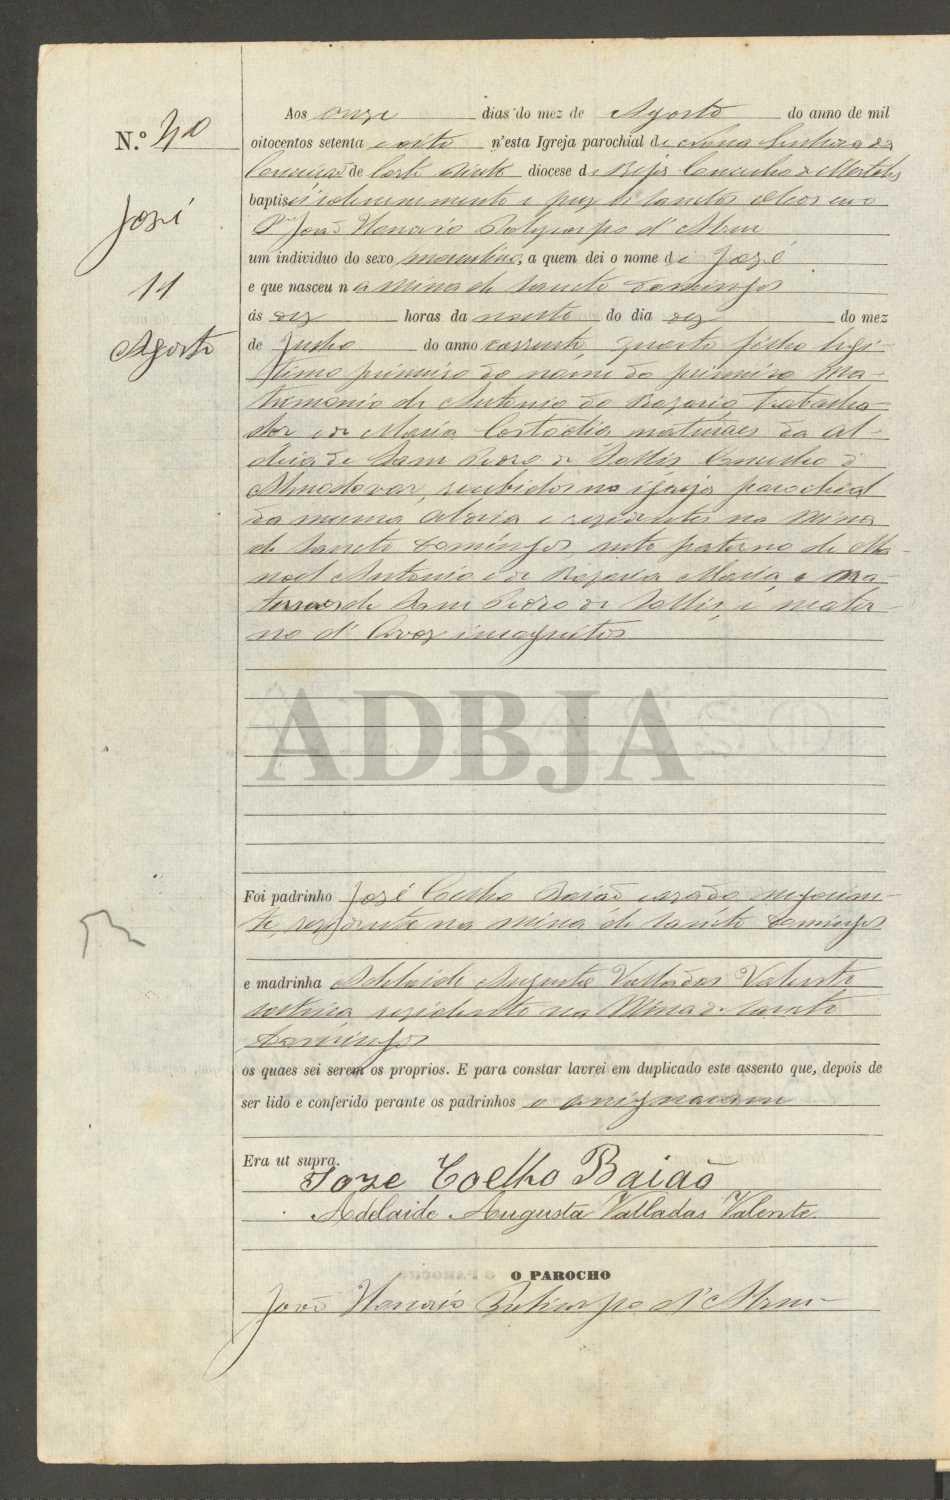 N.º 40
José
11
Agosto
Aos onze dias do mez de Agosto do anno de mil
oitocentos setenta e oito n'esta Igreja parochial de Nossa Senhora da
Conceição de Corte do Pinto diocese de Beja Concelho de Mertola
baptisei solemnemente e puz os sanctos oleos eu o
P.e João Honorio Policarpo d'Abreu
um individuo do sexo masculino, a quem dei o nome de José
e que nasceu na mina de Sancto Domingos
ás dez horas da noute do dia dez do mez
de Junho do anno corrente, quarto filho legi-
timo primeiro do nome do primeiro Ma-
trimonio de Antonio do Rozario, trabalha-
dor e de Maria Custodia, naturaes da al-
deia de Sam Pedro de Sollis Concelho d'
Almodovar, recebidos na igreja parochial
da mesma aldeia e rezidentes na Mina
de Sancto Domingos, neto paterno de Ma-
noel Antonio e de Rozaria Maria, na-
turaes de Sam Pedro de Sollis, e mater-
no d'Avos incognitos
ADBJA
Foi padrinho José Coelho Baião cazado negocian-
te, rezidente na mina de Sancto Domingos
e madrinha Adelaide Augusta Valladas Valente
solteira rezidente na Mina de Sancto
Domingos
os quaes sei serem os proprios. E para constar lavrei em duplicado este assento que, depois de
ser lido e conferido perante os padrinhos o assignaram
Era ut supra.
Joze Coelho Baião
Adelaide Augusta Valladas Valente.
O PAROCHO
João Honorio Policarpo d'Abreu